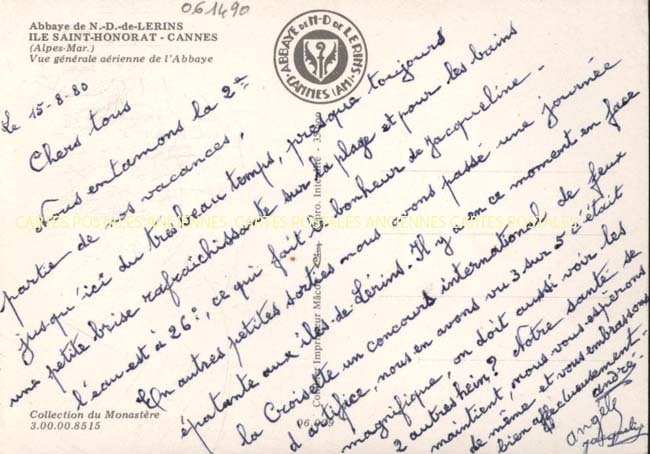 061490
Abbaye de N.-D.-de-LERINS
ILE SAINT-HONORAT - CANNES
(Alpes-Mar.)
Vue générale aérienne de l'Abbaye
ABBAYE DE N-D DE LERINS
CANNES (AM)
Le 15-8-80
Chers tous
Nous entamons la 2e
partie de nos vacances,
jusqu'ici du très beau temps, presque toujours
une petite brise rafraîchissante sur la plage et pour les bains
l'eau est à 26°, ce qui fait le bonheur de Jacqueline.
En autres petites sorties nous avons passé une journée
épatante aux îles de Lérins. Il y a en ce moment en face
la Croisette un concours international de feux
d'artifice, nous en avons vu 3 sur 5 c'était
magnifique, on doit aussi voir les
2 autres hein? Notre santé se
maintient, nous vous espérons
de même et vous embrassons
bien affectueusement.
André
Angèle
Jacqueline
Imprimeur Mâcon
CARTES POSTALES ANCIENNES CARTES POSTALES ANCIENNES CARTES POSTALES ANCIENNES
Collection du Monastère
3.00.00.8515